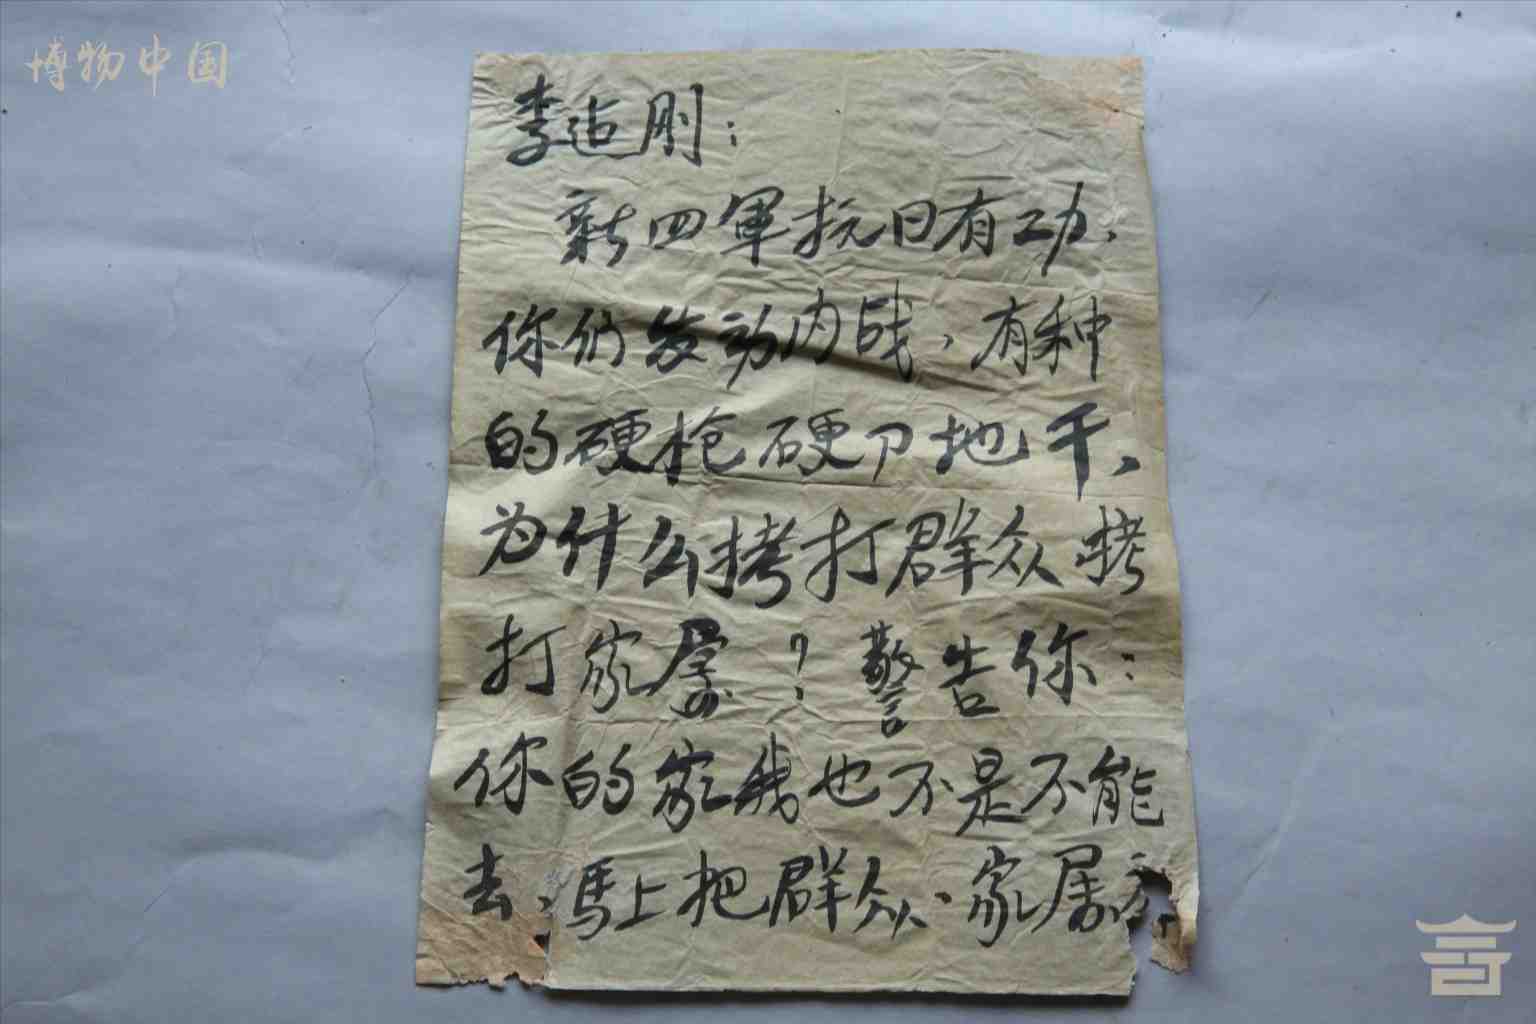 博物中国
李迠刚：
新四軍抗日有功、
你们发动内战，有种
的硬枪硬刀地干、
为什么拷打群众拷
打家属？警告你：
你的家我也不是不能
去、馬上把群众、家属